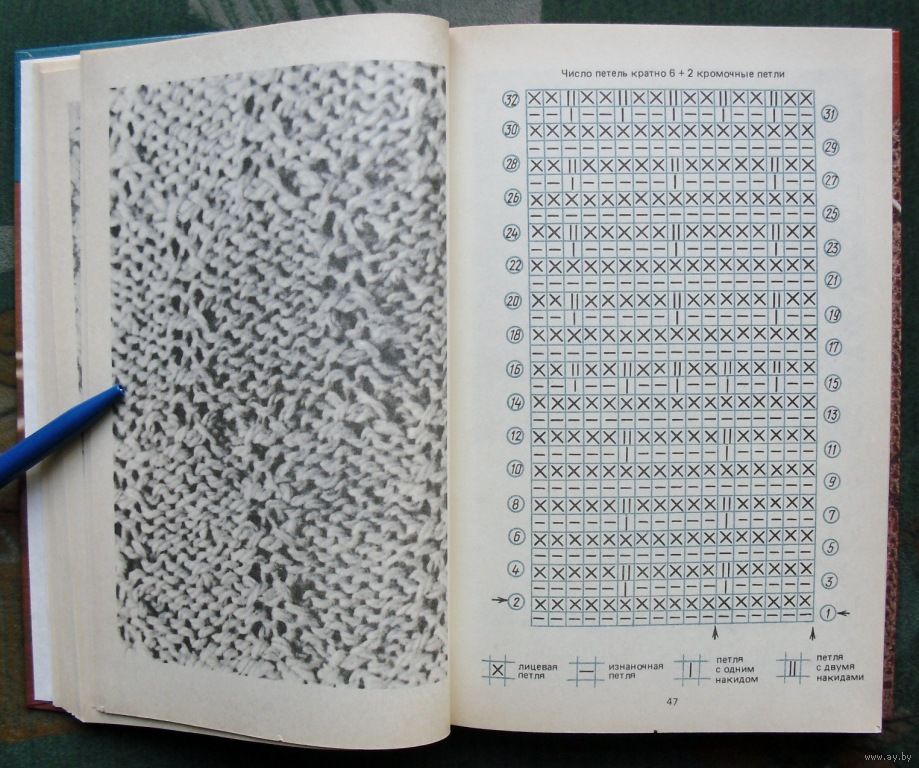 Число петель кратно 6 + 2 кромочные петли
32
31
30
29
28
27
26
25
24
23
22
21
20
19
18
17
16
15
14
13
12
11
10
9
8
7
6
5
4
3
2
1
лицевая
петля
изнаночная
петля
петля
с одним
накидом
петля
с двумя
накидами
47
www.ay.by